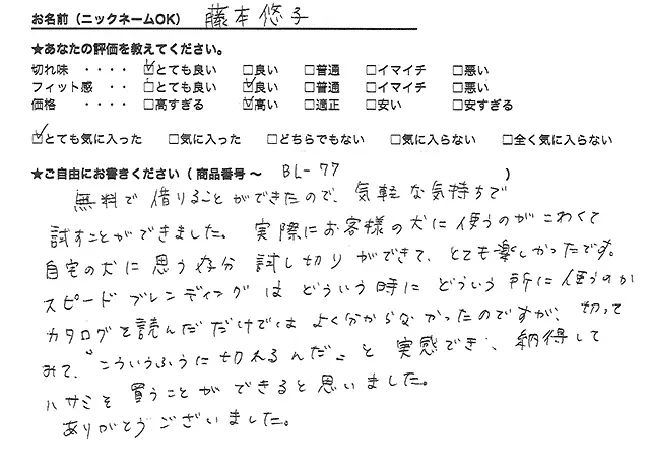 お名前（ニックネームOK） 藤本悠子
★あなたの評価を教えてください。
切れ味 ・・・・ ☑とても良い □良い □普通 □イマイチ □悪い
フィット感 ・・ □とても良い ☑良い □普通 □イマイチ □悪い
価格 ・・・・ □高すぎる ☑高い □適正 □安い □安すぎる
☑とても気に入った □気に入った □どちらでもない □気に入らない □全く気に入らない
★ご自由にお書きください（商品番号～ BL-77 ）
無料で借りることができたので、気軽な気持ちで
試すことができました。実際にお客様の犬に使うのがこわくて
自宅の犬に思う存分試し切りができて、とても楽しかったです。
スピードブレンディングはどういう時にどういう所に使うのか
カタログを読んだだけではよく分からなかったのですが、切って
みて、"こういうふうに切れるんだ"と実感でき、納得して
ハサミを買うことができると思いました。
ありがとうございました。